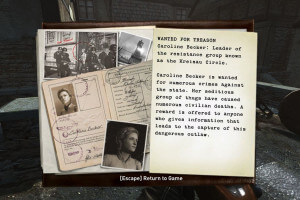 WANTED FOR TREASON
Caroline Becker: Leader of
the resistance group known
as the Kreisau Circle.
Caroline Becker is wanted
for numerous crimes against
the state. Her seditious
group of thugs have caused
numerous civilian deaths. A
reward is offered to anyone
who gives information that
leads to the capture of this
dangerous outlaw.
[Escape] Return to Game